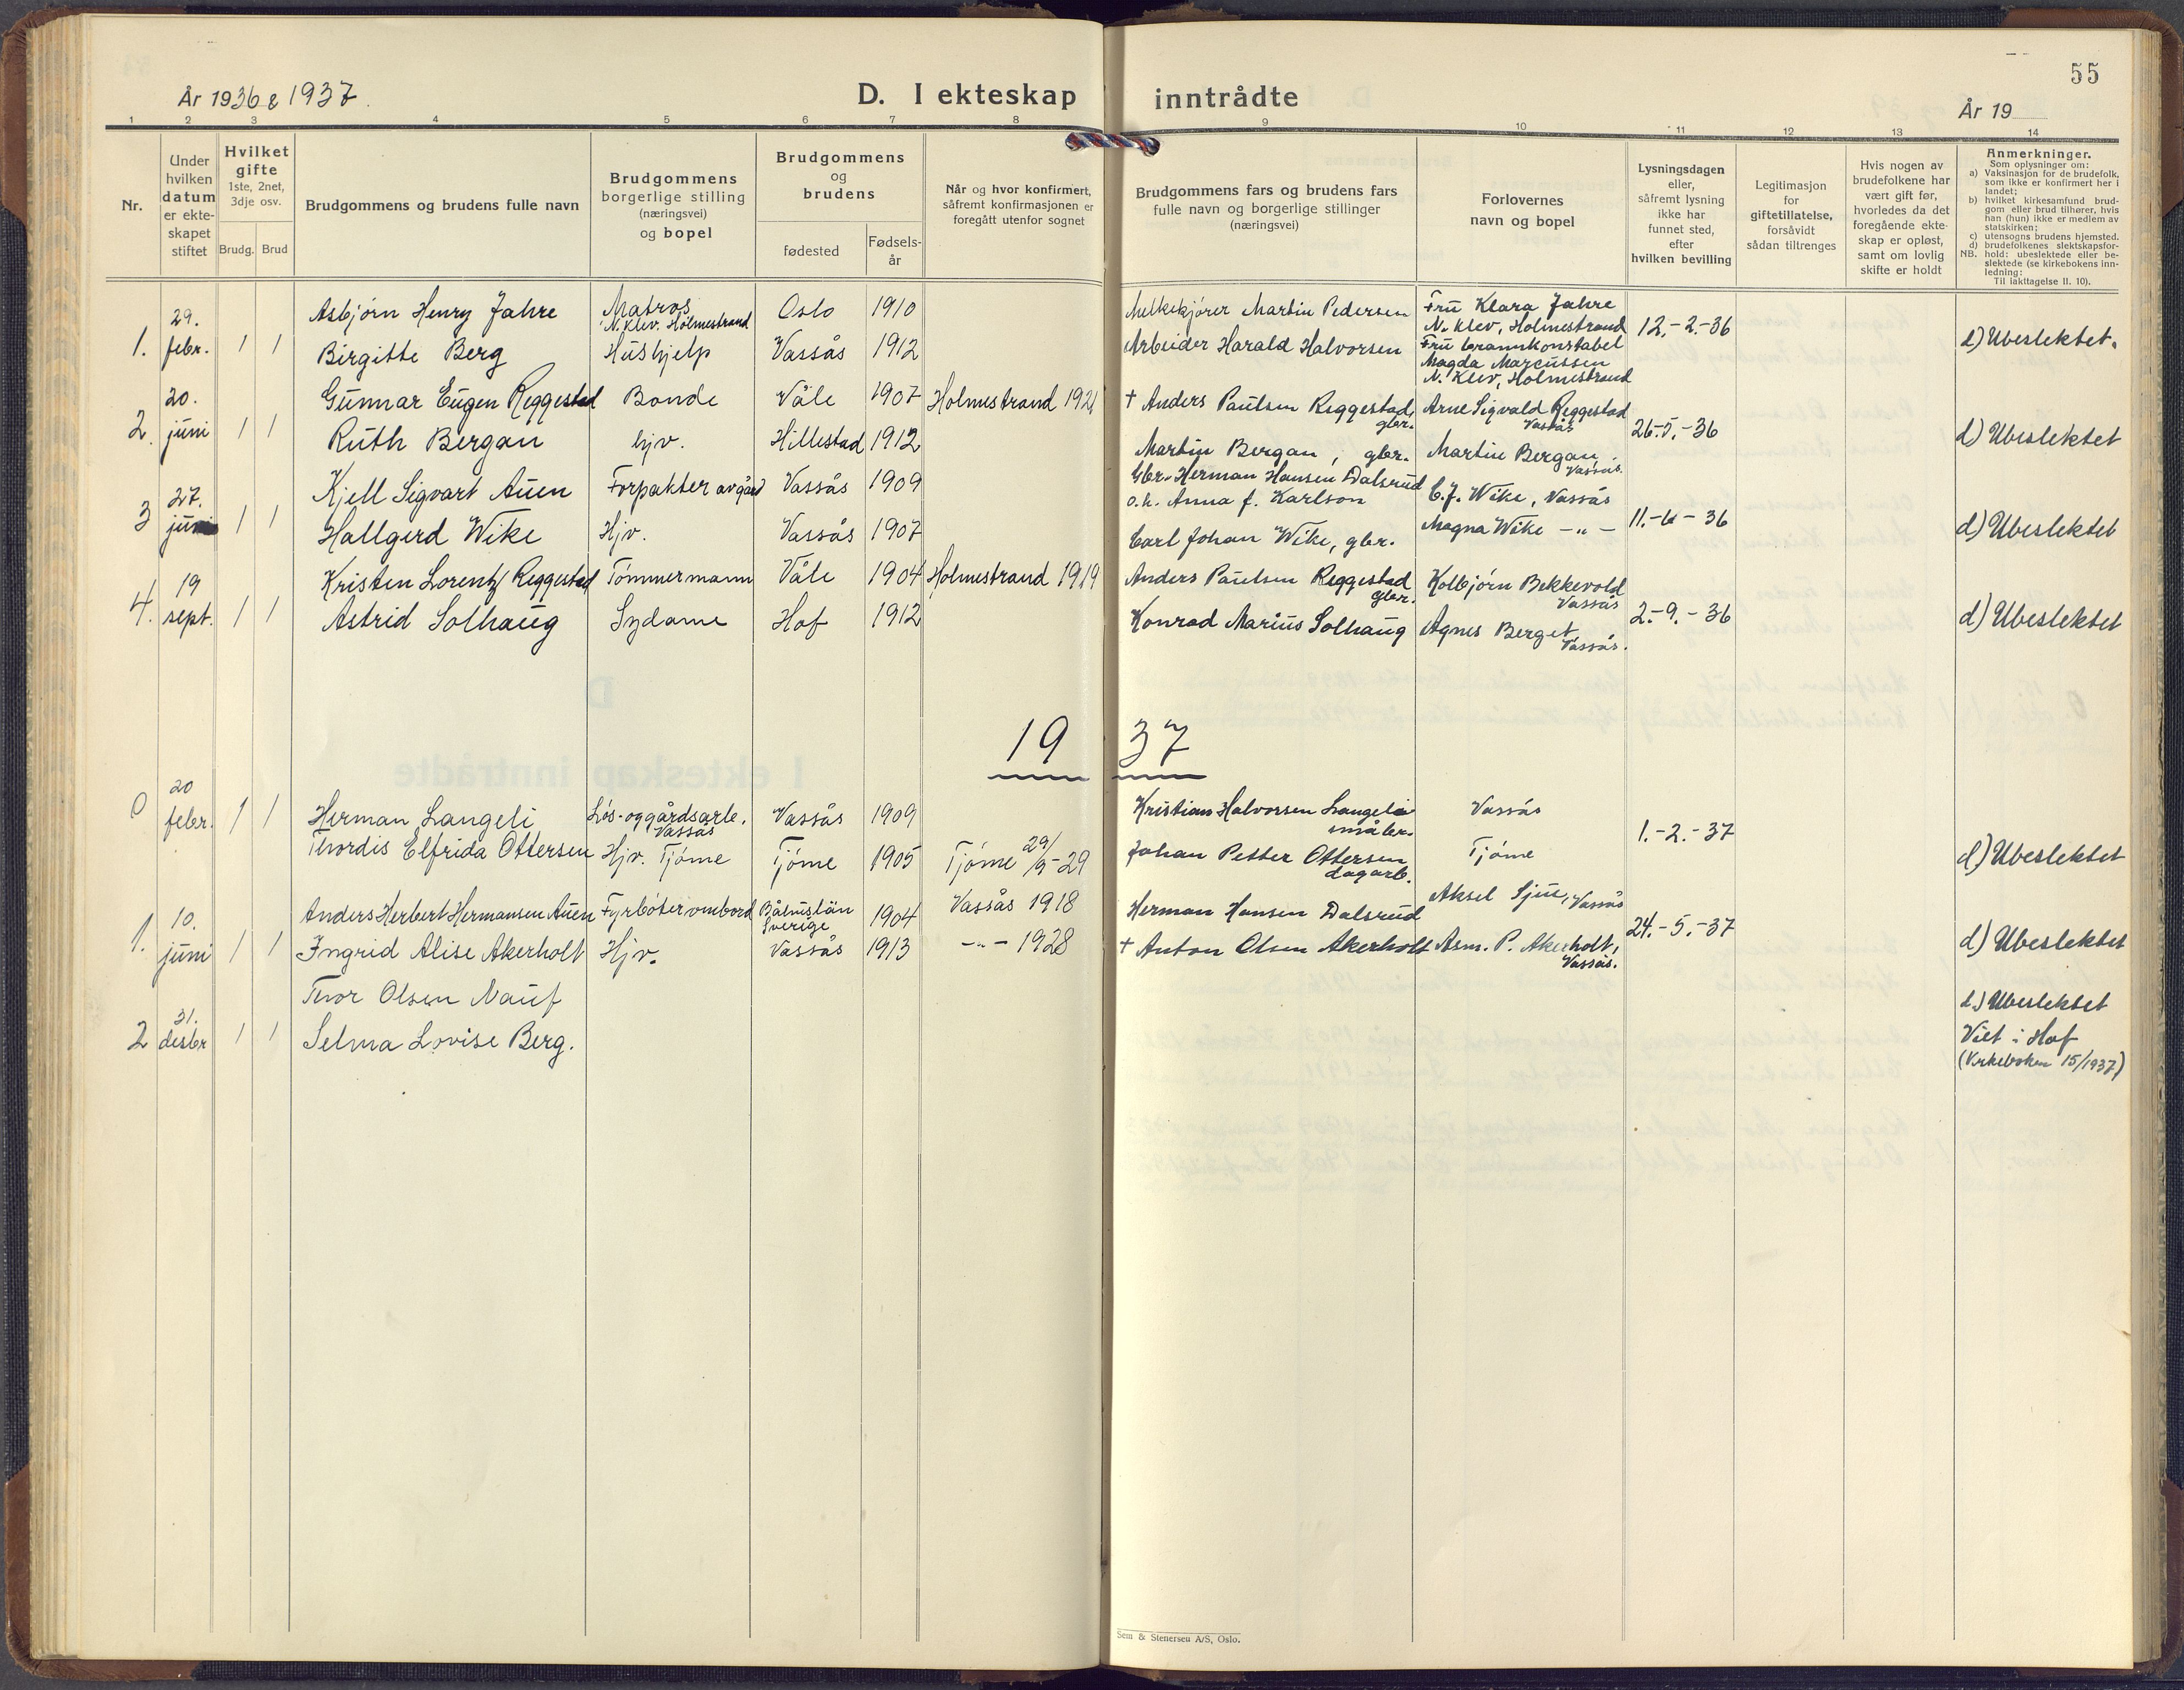 55
År 1936 & 1937.
D. I ekteskap inntrådte
År 19
1 2 3 4 5 6 7 8 9 10 11 12 13 14
Nr.
Under
hvilken
datum
er ekte-
skapet
stiftet
Hvilket
gifte
1ste, 2net,
3dje osv.
Brudg. Brud
Brudgommens og brudens fulle navn
Brudgommens
borgerlige stilling
(næringsvei)
og bopel
Brudgommens
og
brudens
fødested
Fødsels-
år
Når og hvor konfirmert,
såfremt konfirmasjonen er
foregått utenfor sognet
Brudgommens fars og brudens fars
fulle navn og borgerlige stillinger
(næringsvei)
Forlovernes
navn og bopel
Lysningsdagen
eller,
såfremt lysning
ikke har
funnet sted,
efter
hvilken bevilling
Legitimasjon
for
giftetillatelse,
forsåvidt
sådan tiltrenges
Hvis nogen av
brudefolkene har
vært gift før,
hvorledes da det
foregående ekte-
skap er opløst,
samt om lovlig
skifte er holdt
Anmerkninger.
Som oplysninger om:
a) Vaksinasjon for de brudefolk,
som ikke er konfirmert her i
landet;
b) hvilket kirkesamfund brud-
gom eller brud tilhører, hvis
han (hun) ikke er medlem av
statskirken;
c) utensogns brudens hjemsted.
d) brudefolkenes slektskapsfor-
NB. hold: ubeslektede eller be-
slektede (se kirkebokens inn-
ledning:
Til iakttagelse II. 10).
1.
29.
febr.
1 1
Asbjørn Henry Jahre
Matros
N. Klev. Holmestrand
Oslo 1910
Melkekjører Martin Pedersen
Fru Klara Jahre
N. Klev, Holmestrand
Birgitte Berg
Hushjelp
Vassås 1912
Arbeider Harald Halvorsen
Fru brannkonstabel
Magda Marcussen
N. Klev, Holmestrand
12.-2.-36
d) Ubeslektet.
2.
20.
juni
1 1
Gunnar Eugen Reggestad
Bonde
Våle 1907
Holmestrand 1921
† Anders Paulsen Reggestad,
gbr.
Arne Sigvald Reggestad
Vassås
Ruth Bergan
hjv.
Hillestad 1912
Martin Bergan, gbr.
Martin Bergan,
Vassås.
26.-5.-36
d) Ubeslektet
3
27.
juni
1 1
Kjell Sigvart Auen
Forpakter av gård
Vassås 1909
Gbr. Herman Hansen Dalsrud
o.h. Anna f. Karlson
C.J. Wike, Vassås
Hallgerd Wike
Hjv.
Vassås 1907
Carl Johan Wike, gbr.
Magna Wike -"-
11.-6-36
d) Ubeslektet
4.
19
sept.
1 1
Kristen Lorentz Reggestad
Tømmermann
Våle 1904
Holmestrand 1919
Anders Paulsen Reggestad
gbr.
Kolbjørn Bekkevold
Vassås
Astrid Solhaug
Sydame
Hof 1912
Konrad Marius Solhaug
Agnes Berget,
Vassås.
2.-9.-36
d) Ubeslektet
19 37
0
20
febr.
1 1
Herman Langeli
Løs- og gårdsarb.
Vassås
Vassås 1909
Kristian Halvorsen Langeli
småbr.
Vassås
Thordis Elfrida Ottersen
Hjv. Tjøme
Tjøme 1905
Tjøme 29/9-29
Johan Petter Ottersen
dagarb.
Tjøme
1.-2.-37
d) Ubeslektet
1.
10.
juni
1 1
Anders Herbert Hermansen Auen
Fyrbøter ombord
Sverige
1904
Vassås 1918
Herman Hansen Dalsrud
Aksel Sjue, Vassås
Ingrid Alise Akerholt
Hjv.
Vassås 1913
-"- 1928
† Anton Olsen Akerholt
Asm. P. Akerholt,
Vassås.
24.-5.-37
d) Ubeslektet
2
31.
desbr
1 1
Thor Olsen Nauf
Selma Lovise Berg.
d) Ubeslektet
Viet i Hof
(Kirkeboken 15/1937)
Sem & Stenersen A/S, Oslo.